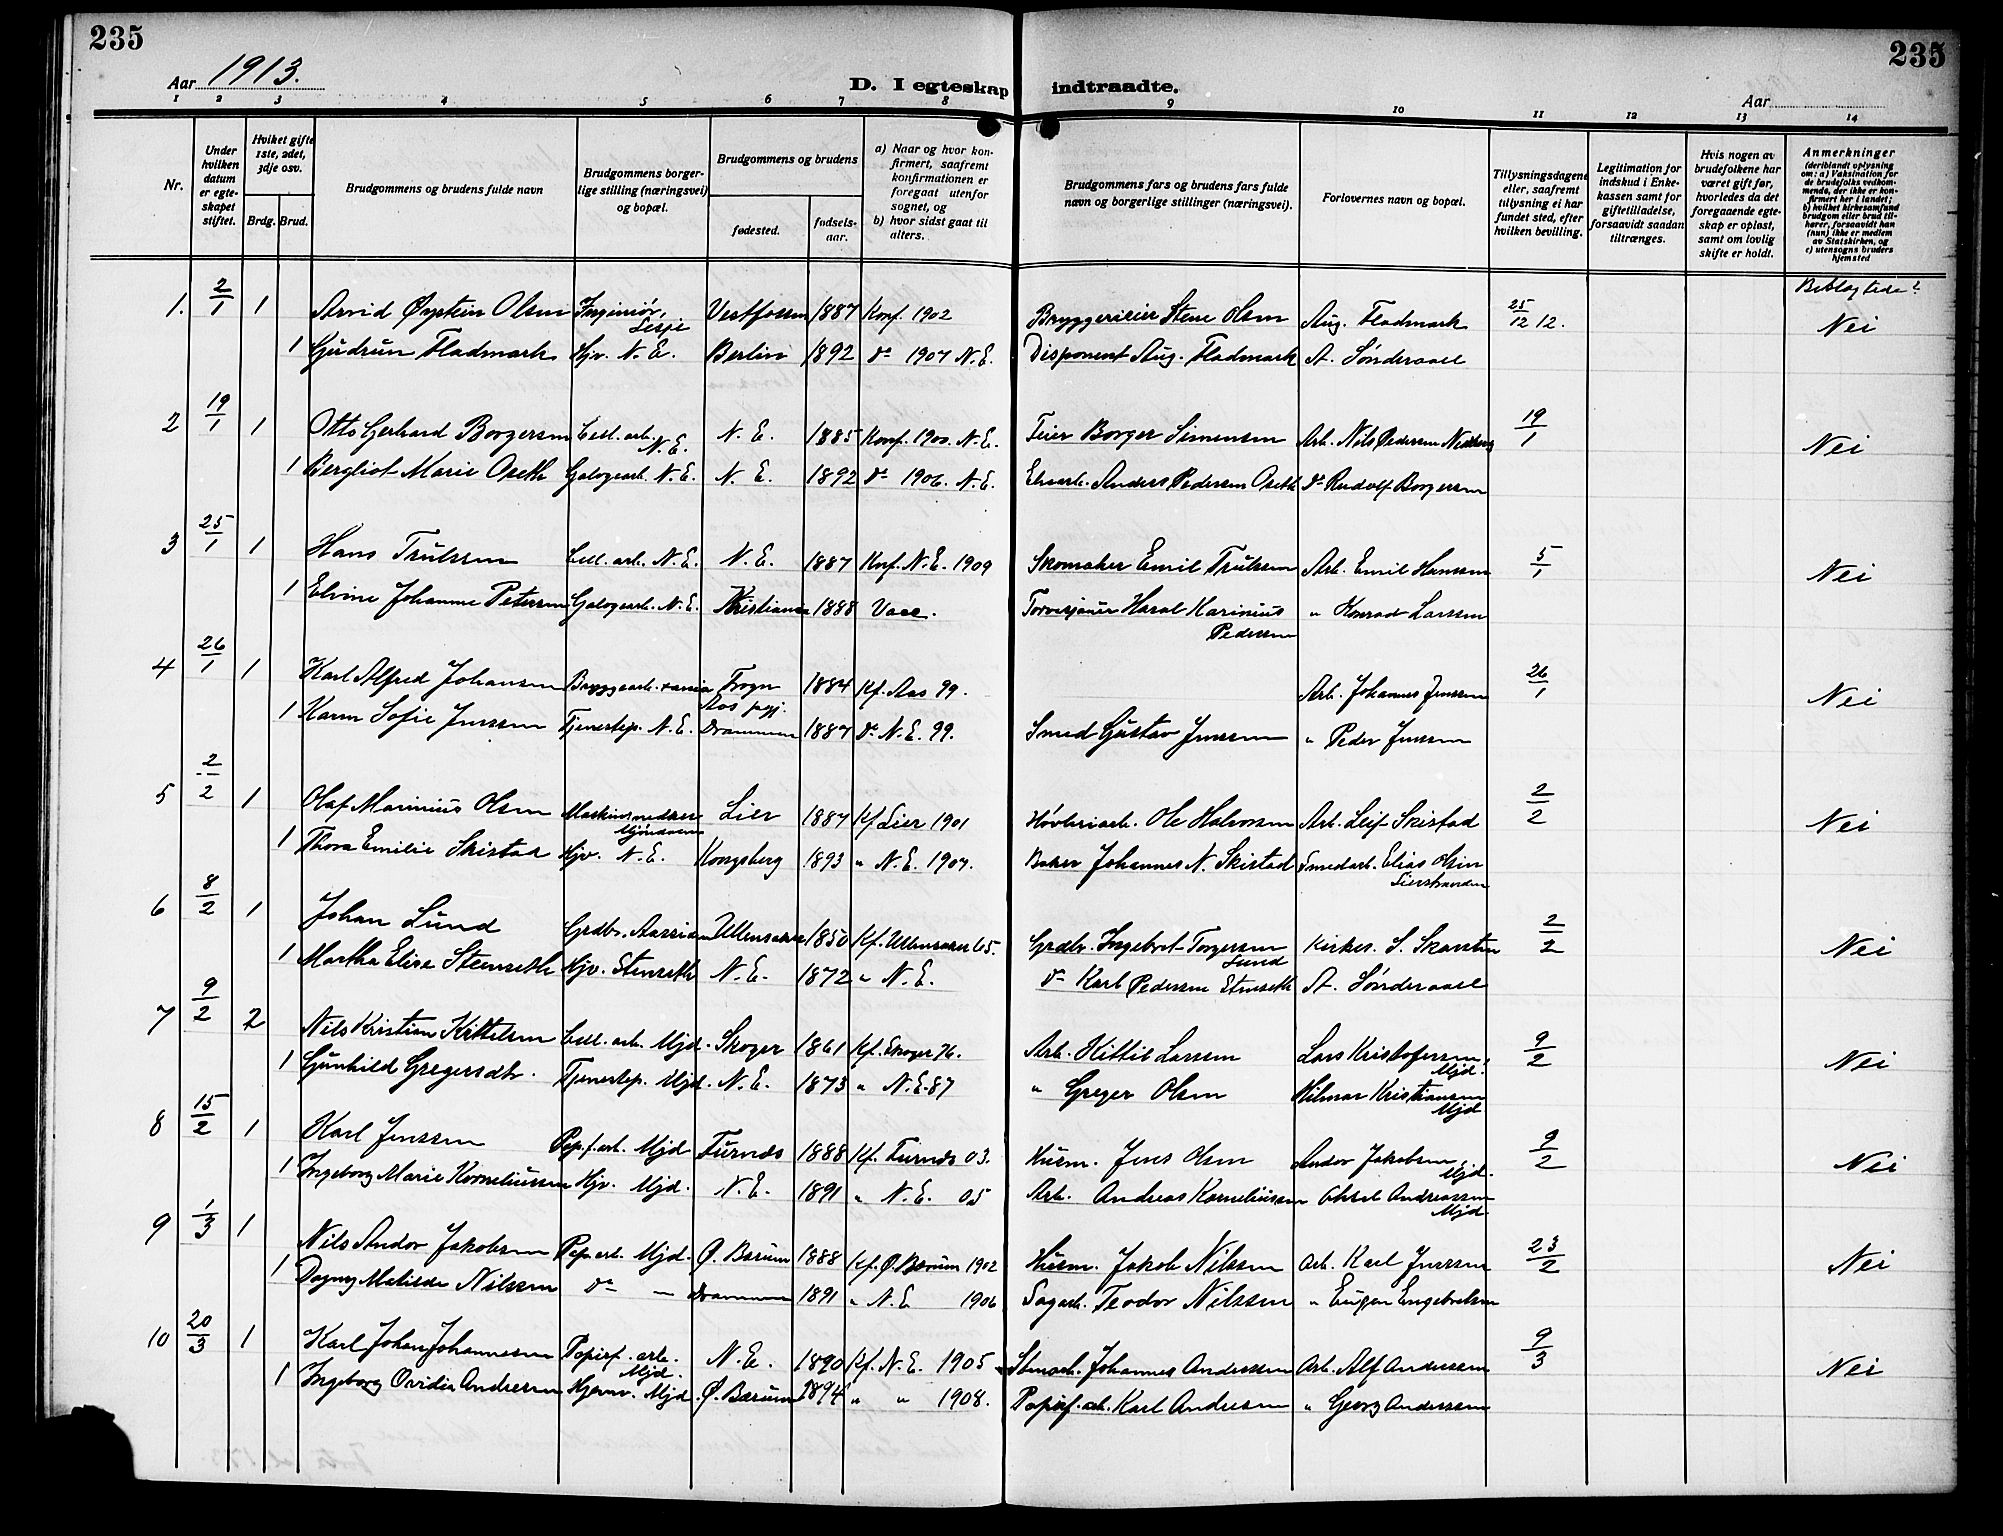 235
235
Aar 1913.
D. I egteskap indtraadte.
Aar
1 2 3 4 5 6 7 8 9 10 11 12 13 14
Nr.
Under hvilken datum er egteskapet stiftet.
Hvilket gifte 1ste, 2det, 3dje osv.
Brdg. Brud.
Brudgommens og brudens fulde navn
Brudgommens borgerlige stilling (næringsvei) og bopæl.
Brudgommens og brudens
fødested.
fødselsaar.
a) Naar og hvor konfirmert, saafremt konfirmationen er foregaat utenfor sognet, og
b) hvor sidst gaat til alters.
Brudgommens fars og brudens fars fulde navn og borgerlige stillinger (næringsvei).
Forlovernes navn og bopæl.
Tillysningsdagene eller, saafremt tillysning ei har fundet sted, efter hvilken bevilling.
Legitimation for indskud i Enkekassen samt for giftetilladelse, forsaavidt saadan tiltrænges.
Hvis nogen av brudefolkene har været gift før, hvorledes da det foregaaende egteskap er opløst, samt om lovlig skifte er holdt.
Anmerkninger
(deriblandt oplysning om: a) Vaksination for de brudefolks vedkommende, der ikke er konfirmert her i landet; b) hvilket kirkesamfund brudgom eller brud tilhører, forsaavidt han (hun) ikke er medlem av Statskirken, og c) utensogns bruders hjemsted
1. 2/1 1 Arvid Øystein Olsen Ingeniør, Vestfossen 1887 Konf. 1902 Bryggerieier Stene Olsen Aug. Fladmark 25/12 12. Nei
1 Gudrun Fladmark Hjv. N. E. Berlin 1892 do 1907 N. E. Disponent Aug. Fladmark A. Sønderaael
2 19/1 1 Otto Gerhard Borgersen Cell. arb. N. E. N. E. 1885 Konf. 1900. N. E. Feier Borger Simensen Arb. Nils Pedersen 19/1 Nei
1 Bergliot Marie Oseth Galogearb. N. E. N. E. 1892 do 1906. N. E. Anders Pedersen Oseth do Rudolf Borgersen
3 25/1 1 Hans Trulssen Cell. arb. N. E. N. E. 1887 Konf. N. E. 1909 Skomaker Emil Trulssen Arb. Emil Hanssen 5/1 Nei
1 Elvine Johanne Petersen Galogearb. N. E. Kristiania 1888 Vace. Karinius Pedersen " Konrad Larssen
4 26/1 1 Karl Alfred Johansen Frogn Aas pgj. 1884 Kf. Aas 99. Arb. Johannes Jenssen 26/1 Nei
1 Karen Sofie Jenssen Tjenestep. N. E. Drammen 1887 do N. E. 99. Smed Gustav Jenssen " Peder Jenssen
5 2/2 1 Olaf Marinius Olsen Mjøndalen Lier 1887 Kf Lier 1901 Høvleriarb. Ole Halvorsen Arb. Leif Skistad 2/2 Nei
1 Thora Emilie Skistad Hjv. N. E. Kongsberg 1893 " N. E. 1907. Baker Johannes N. Skistad Smedarb. Elias Olsen Lierstranden
6 8/2 1 Johan Lund Grdbr. Ullensaker 1850 Kf. Ullensaker 65. Grdbr. Ingebret Torgersen Lund Kirkes. S. Skarsten 2/2 Nei
1 Martha Elise Stenseth Hjv. Stenseth N. E. 1872 " N. E. do Karl Pedersen Stenseth A. Sønderaael
7 9/2 2 Nils Kristian Kittelsen Cell. arb. Mjd. Skoger 1861 Kf. Skoger 76. Arb. Kittil Larssen Lars Kristofersen Mjd. 9/2 Nei
1 Gunhild Gregersdtr. Tjenestep. Mjd. N. E. 1873 " N. E. 87 " Greger Olsen Hilmar Kristiansen Mjd.
8 15/2 1 Karl Jenssen Pap. f. arb. Mjd Furnes 1888 Kf. Furnes 03. Husm. Jens Olsen Andor Jakobsen Mjd. 9/2 Nei
1 Ingeborg Marie Korneliussen Hjv. Mjd. N. E. 1891 " N. E. 05 Arb. Andreas Korneliussen Aksel Andreassen Mjd.
9 1/3 1 Nils Andor Jakobsen Pap. arb. Mjd. Ø. Bærum 1888 Kf. Ø. Bærum 1902 Husm. Jakob Nilssen Arb. Karl Jenssen 23/2 Nei
1 Dagny Matilde Nilssen do — Drammen 1891 " N. E 1906 Sagarb. Teodor Nilssen " Eugen Engebretsen
10 20/3 1 Karl Johan Johannesen Papirf. arb. Mjd. N. E. 1890 Kf. N. E. 1905 Stenarb. Johannes Anderssen Arb. Alf Anderssen 9/3 Nei
1 Ingeborg Ovidia Andresen Hjemv. Mjd. Ø. Bærum 1894 " " 1908. Papirf. arb. Karl Andresen " Georg Anderssen